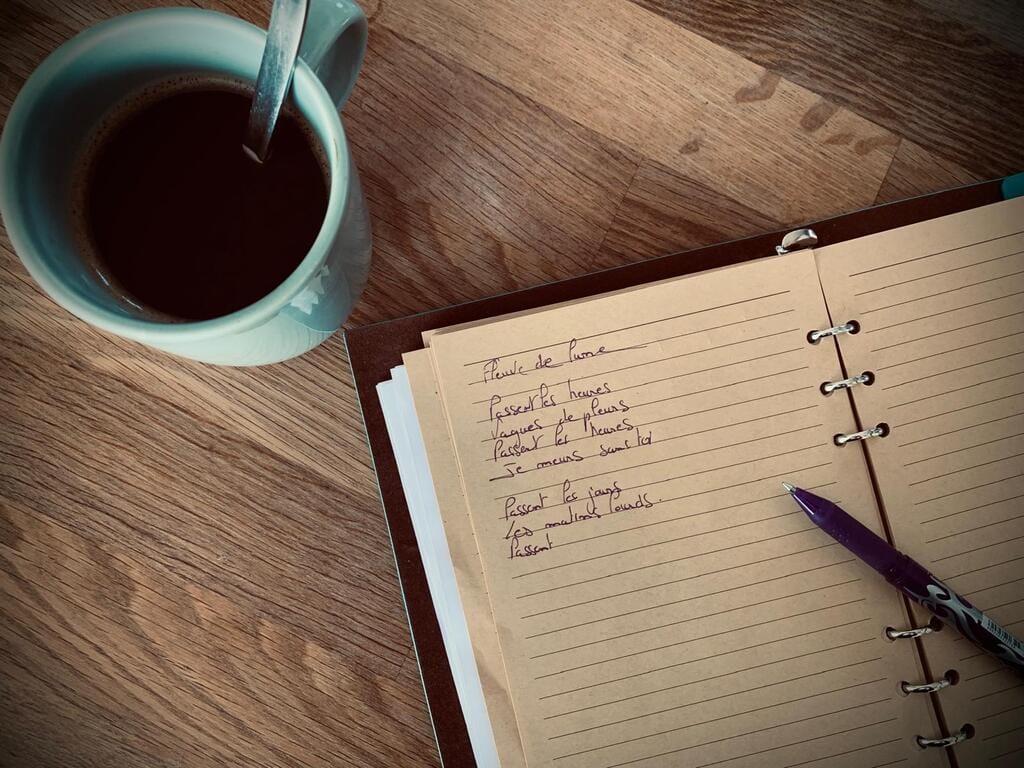 Fleuve de lune
Passent les heures
Vagues de pleurs
Passent les heures
Je meurs sans toi
Passent les jours
Les matins lourds.
Passent